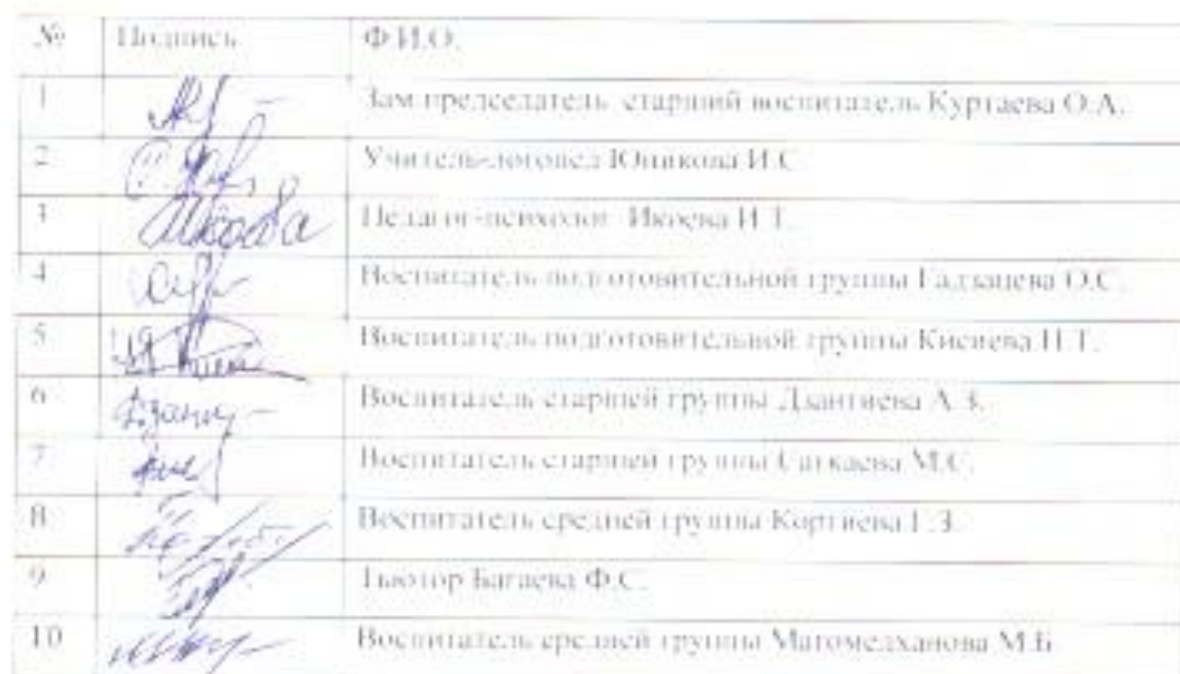 № Подпись Ф.И.О.
1 Зам председатель старший воспитатель Куртаева О.А.
2 Учитель-логопед И.С
3 Икоева Педагог-психолог Икоева И.Т.
4 Воспитатель подготовительной группы Гадзацева О.С.
5 Воспитатель подготовительной группы Кисиева Н.Т.
6 Воспитатель старшей группы Дзантиева А.З.
7 Воспитатель старшей группы Саткаева М.С.
8 Воспитатель средней группы Кортиева Г.З.
9 Тьютор Багаева Ф.С.
10 Воспитатель средней группы Магомедханова М.Б